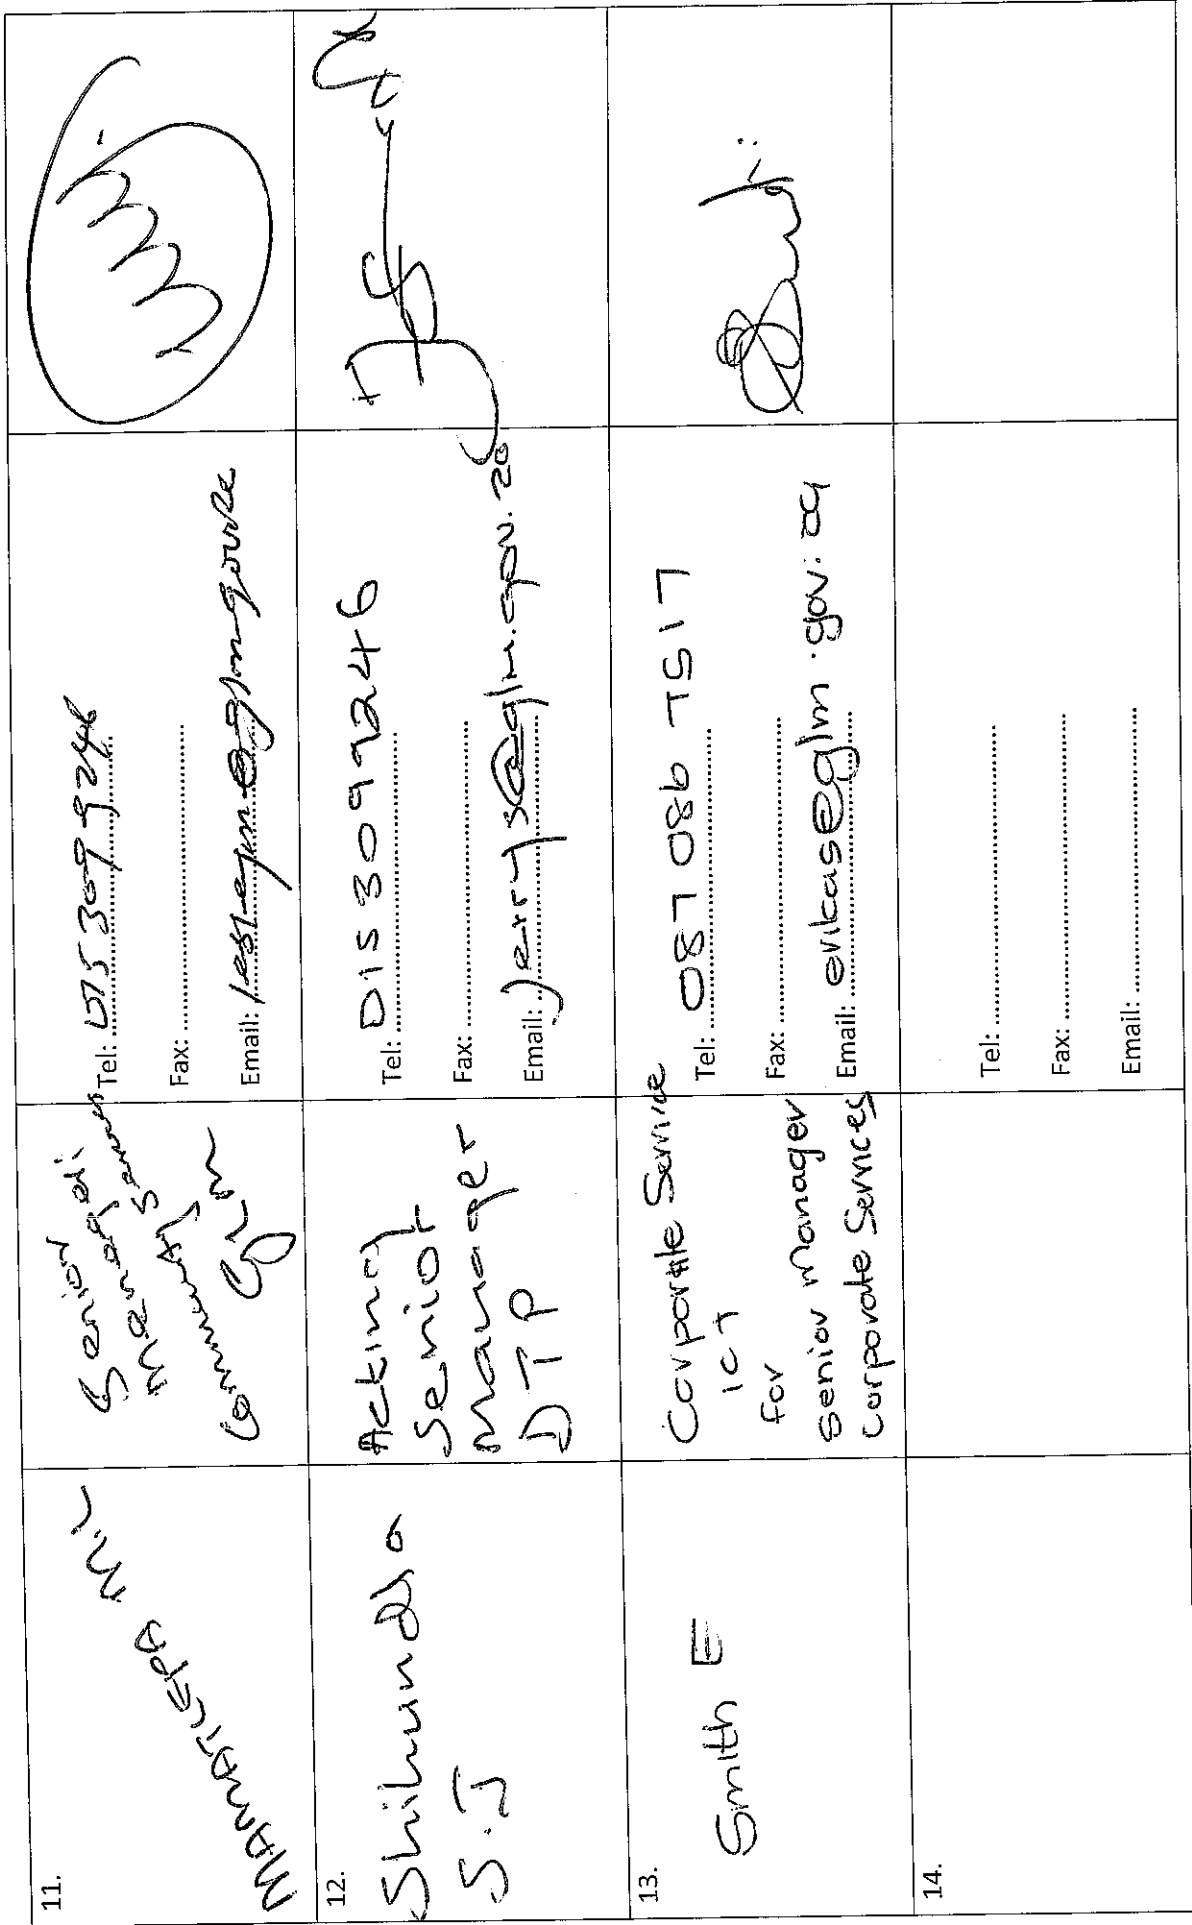 11.
MAMATLEPA M.L
Senior
Manager:
Community Services
GLM
Tel: 015 309 9246
Fax:
Email:
12.
Shihundla
S.J
Acting
Senior
Manager
DTP
Tel: 015 309 9246
Fax:
Email: Jerrys@glm.gov.za
13.
Smith E
Corporate Service
ICT
for
Senior Manager
Corporate Services
Tel: 087 086 7517
Fax:
Email: erikas@glm.gov.za
14.
Tel:
Fax:
Email: